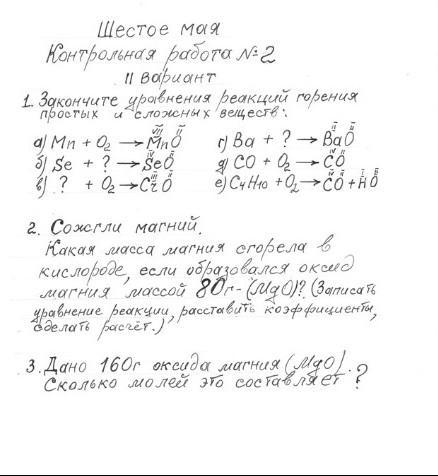 Шестое мая
Контрольная работа №2
II вариант
1. Закончите уравнения реакций горения
простых и сложных веществ:
а) Mn + O₂ → MnO (VII, II)
г) Ba + ? → BaO (II, II)
б) Se + ? → SeO (IV, II)
д) CO + O₂ → CO (IV, II)
в) ? + O₂ → CrO (III, II)
е) C₄H₁₀ + O₂ → CO (IV, II) + HO (I, II)
2. Сожгли магний.
Какая масса магния сгорела в
кислороде, если образовался оксид
магния массой 80г - (MgO)? (Записать
уравнение реакции, расставить коэффициенты,
сделать расчёт.)
3. Дано 160г оксида магния (MgO).
Сколько молей это составляет?